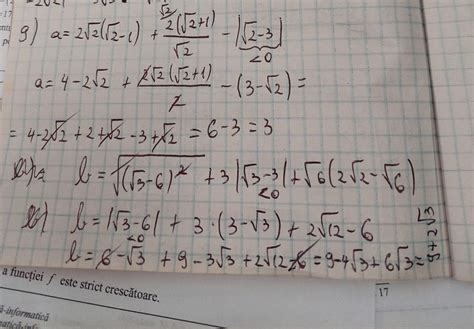 g) a = 2√2(√2-1) + 2(√2+1)/√2 - |√2-3|
√2
<0
a = 4-2√2 + 2√2(√2+1)/2 - (3-√2) =
= 4-2√2+2+√2-3+√2 = 6-3 = 3
b = √(√3-6)² + 3|√3-3| + √6(2√2-√6)
<0
b) b = |√3-6| + 3·(3-√3) + 2√12-6
<0
b = 6-√3 + 9-3√3 + 2√12-6 = 9-4√3+6√3 =
a funcției f este strict crescătoare.
ă-informatică
17